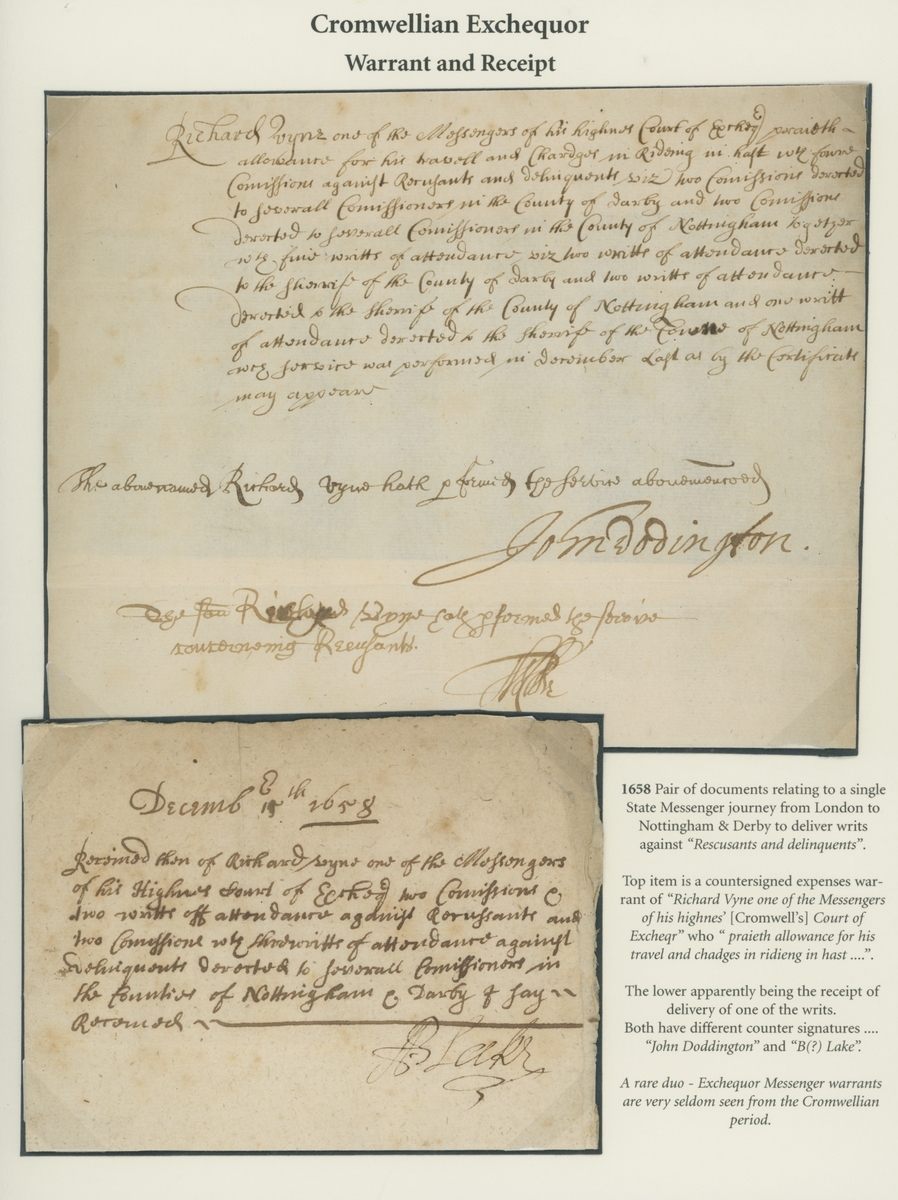 Cromwellian Exchequor
Warrant and Receipt
Richard Vyne one of the Messengers of his highnes Court of Excheqr praieth
allowance for his travell and Chardges in Rideing in hast wth fowre
Comissions against Recusants and delinquents viz two Comissions derected
to severall Comissioners in the County of Darby and two Comissions
derected to severall Comissioners in the County of Nottingham together
wth five writts of attendance viz two writts of attendance derected
to the Sherrife of the County of Darby and two writts of attendance
derected to the Sherrife of the County of Nottingham and one writt
of attendance derected to the Sherrife of the Towne of Nottingham
wch service was performed in december Last as by the Certificate
may appeare
The abovenamed Richard Vyne hath pformed the service abovemencoed
John Dodington.
The sd Richard Vyne hath pformed the service
concerneing Recusants.
Lake
Decembr 15th 1658
Received then of Richard Vyne one of the Messengers
of his Highnes Court of Excheqr two Comissions &
two writts off attendance against Recussants and
two Comissions wth three writts of attendance against
delinquents derected to severall Comissioners in
the Counties of Nottingham & Darby I say
Received
Lake
1658 Pair of documents relating to a single
State Messenger journey from London to
Nottingham & Derby to deliver writs
against “Rescusants and delinquents”.
Top item is a countersigned expenses war-
rant of “Richard Vyne one of the Messengers
of his highnes’ [Cromwell’s] Court of
Excheqr” who “ praieth allowance for his
travel and chadges in ridieng in hast ....”.
The lower apparently being the receipt of
delivery of one of the writs.
Both have different counter signatures ....
“John Doddington” and “B(?) Lake”.
A rare duo - Exchequor Messenger warrants
are very seldom seen from the Cromwellian
period.